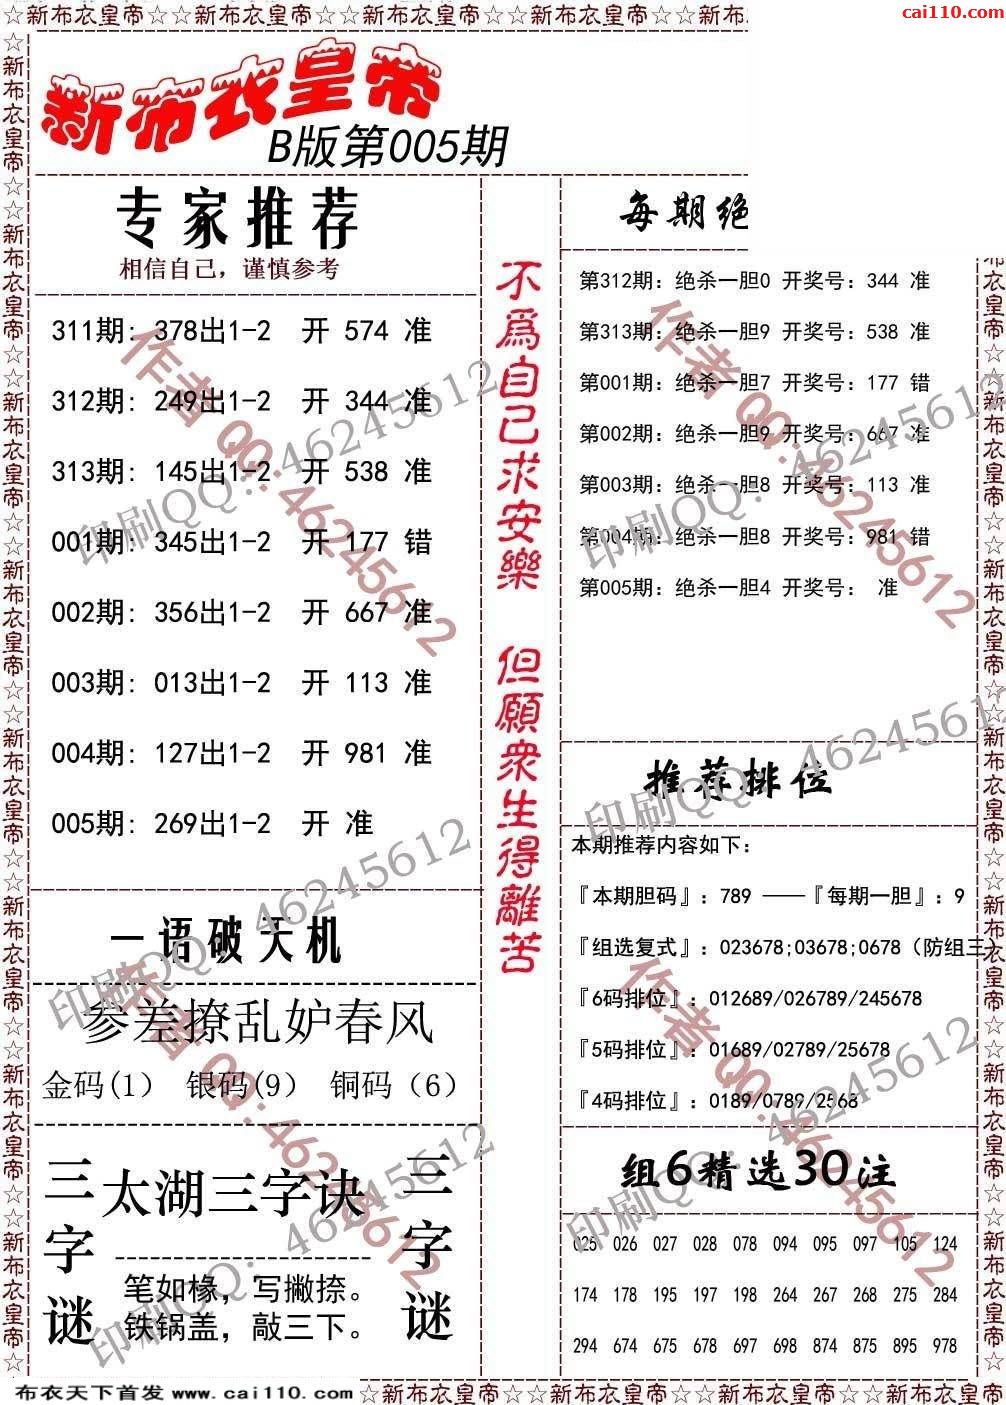 ☆新布衣皇帝☆☆新布衣皇帝☆☆新布衣皇帝☆☆新布衣皇帝☆☆新布
cai110.com
新布衣皇帝
B版第005期
专家推荐
相信自己，谨慎参考
311期: 378出1-2 开 574 准
312期: 249出1-2 开 344 准
313期: 145出1-2 开 538 准
001期: 345出1-2 开 177 错
002期: 356出1-2 开 667 准
003期: 013出1-2 开 113 准
004期: 127出1-2 开 981 准
005期: 269出1-2 开 准
一语破天机
参差撩乱妒春风
金码(1) 银码(9) 铜码（6）
三字谜
太湖三字诀
笔如椽，写撇捺。
铁锅盖，敲三下。
三字谜
不爲自己求安樂 但願衆生得離苦
每期绝
第312期: 绝杀一胆0 开奖号: 344 准
第313期: 绝杀一胆9 开奖号: 538 准
第001期: 绝杀一胆7 开奖号: 177 错
第002期: 绝杀一胆9 开奖号: 667 准
第003期: 绝杀一胆8 开奖号: 113 准
第004期: 绝杀一胆8 开奖号: 981 错
第005期: 绝杀一胆4 开奖号: 准
推荐排位
本期推荐内容如下:
『本期胆码』: 789 ——『每期一胆』: 9
『组选复式』: 023678;03678;0678（防组三）
『6码排位』: 012689/026789/245678
『5码排位』: 01689/02789/25678
『4码排位』: 0189/0789/2568
组6精选30注
025 026 027 028 078 094 095 097 105 124
174 178 195 197 198 264 267 268 275 284
294 674 675 678 697 698 874 875 895 978
作者 QQ:46245612
印刷QQ: 46245612
作者 QQ:46245612
印刷QQ: 46245612
印刷QQ: 46245612
印刷QQ: 46245612
作者 QQ:46245612
作者 QQ:46245612
印刷QQ: 46245612
印刷QQ: 46245612
布衣天下首发 www.cai110.com
☆新布衣皇帝☆☆新布衣皇帝☆☆新布衣皇帝☆☆新布衣皇帝☆